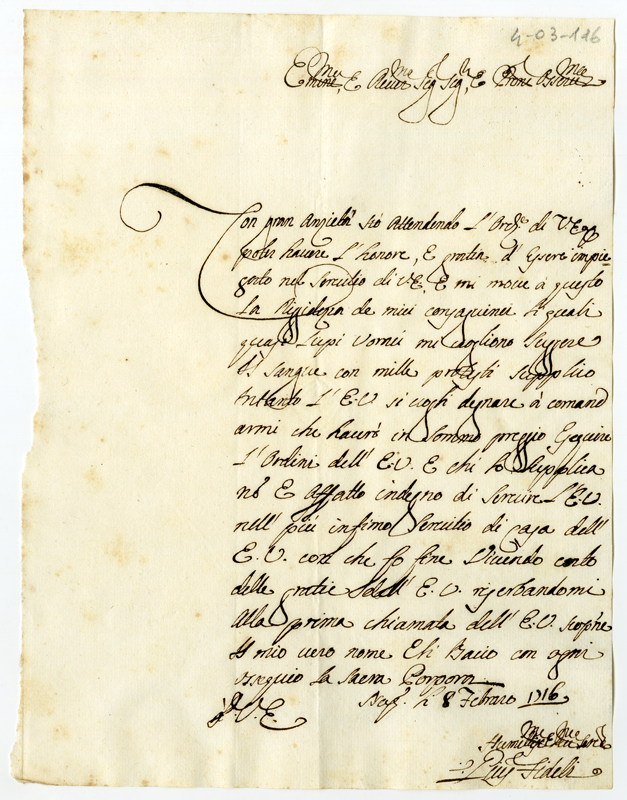 4-03-126
Emin.mo E Rev.mo Sig.r Sig.r, E Prone
Con gran Anzietà stò Attendendo L'Ord.e di V.E. p
poter havere L'honore, E gratia d'Essere impie-
gato nel Servitio di V.E. E mi move à questo
La Rigidezza de miei consanguinei li quali
quasi Lupi mi vogliono Suggere
il Sangue con mille protesti supplico
Intanto L'E.V. si vogli degnare à comand
armi che haverò in Sommo preggio Eseguire
L'Ordini dell'E.V. E chi la Supplica
nò E Affatto indegno di Servire L'E.V.
nell più infimo Servitio di casa dell'
E.V. con che fo fine Vivendo certo
delle gratie dell'E.V. riserbandomi
Alla prima chiamata dell'E.V. scoprire
Il mio vero nome E li Bacio con ogni
osseguio la Sacra Porpora
Nap. li 8 Febraro 1716
D.V.E.
Humil.mo
Fideli